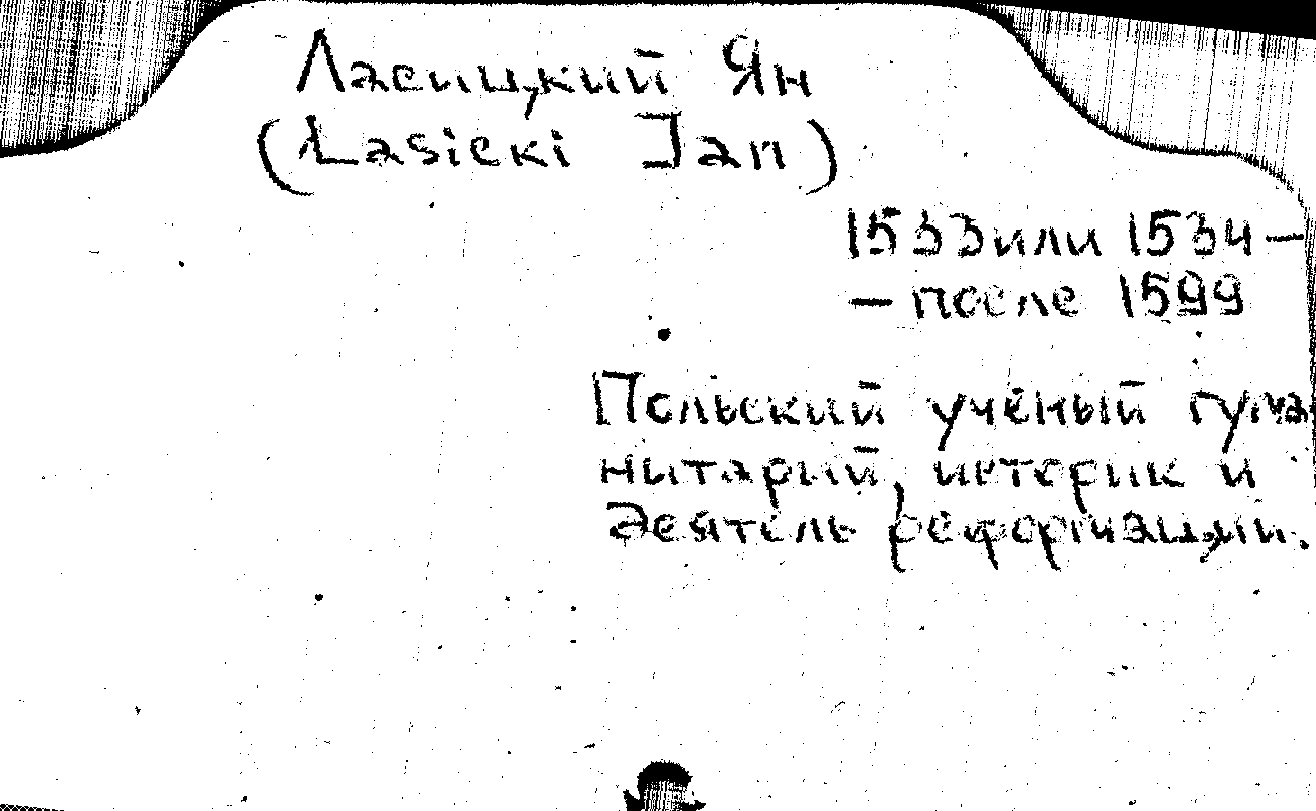 Ласицкий Ян
(Łasicki Jan)
1533 или 1534 –
– после 1599
Польский учёный гума
нитарий, историк и
деятель реформации.